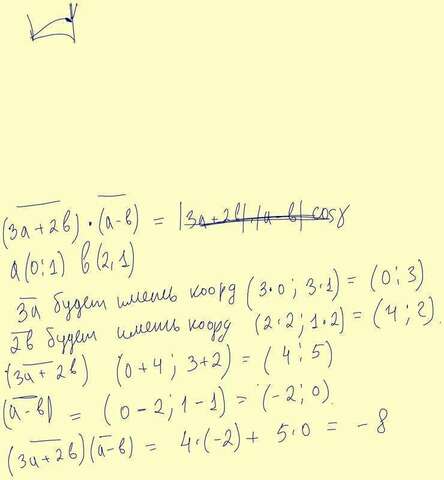 (3a+2b)·(a-b) = |3a+2b|·|a-b| cosγ
a(0;1) b(2,1)
3a будет иметь коорд (3·0; 3·1) = (0;3)
2b будет иметь коорд (2·2; 1·2) = (4;2)
(3a+2b) (0+4; 3+2) = (4;5)
(a-b) = (0-2; 1-1) = (-2;0)
(3a+2b)(a-b) = 4·(-2) + 5·0 = -8